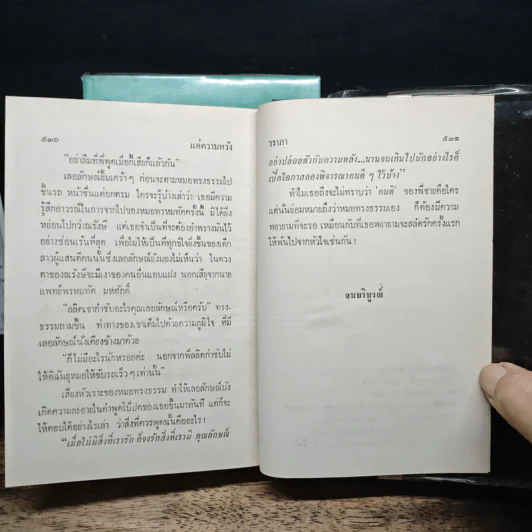 ๕๓๐
แค่ความหวัง
"อย่าลืมที่พี่พูดเมื่อกี้เสียก็แล้วกัน"
เลอลักษณ์ยิ้มเศร้าๆ ก่อนจะตามหมอทรงธรรมไป
ขึ้นรถ หน้าชื่นแต่อกตรม ใครจะรู้บ้างเล่าว่า เธอมีความ
รู้สึกอาวรณ์ในการจากไปของหมอพรหมทัตครั้งนี้ มิได้ยิ่ง
หย่อนไปกว่าณรังษี แต่เธอจำเป็นที่จะต้องอำพรางมันไว้
อย่างซ่อนเร้นที่สุด เพื่อไม่ให้เป็นที่ทุกข์ใจยิ่งขึ้นของเด็ก
สาวผู้แสนดีคนนั้นซึ่งเลอลักษณ์ยังมองไม่เห็นว่า ในดวง
ตาของณรังษีจะมีเงาของคนอื่นแอบแฝง นอกเสียจากนาย
แพทย์พรหมทัต มหศักดิ์
"ลลิตเขากำชับอะไรคุณเลอลักษณ์หรือครับ" ทรง-
ธรรมถามขึ้น ท่าทางของเขาเต็มไปด้วยความภูมิใจ ที่มี
เลอลักษณ์นั่งเคียงข้างมาด้วย
"ก็ไม่มีอะไรนักหรอกค่ะ นอกจากพี่ลลิตกำชับไม่
ให้ดิฉันยุหมอให้ขับรถเร็วๆ เท่านั้น"
เสียงหัวเราะของหมอทรงธรรม ทำให้เลอลักษณ์บัง
เกิดความละอายในคำพูดโป้ปดของเธอขึ้นมาทันที แต่ก็จะ
ให้ตอบได้อย่างไรเล่า ว่าสิ่งที่ควรพูดนั้นคืออะไร!
"เมื่อไม่มีสิ่งที่เรารัก ก็จงรักสิ่งที่เรามี คุณลักษณ์
วราภา
๕๓๑
อย่าปล่อยตัวกับความหลัง...นานจนเกินไปนักอย่างไรก็
เปิดโอกาสลองพิจารณาคนดี ๆ ไว้บ้าง"
ทำไมเธอถึงจะไม่ทราบว่า 'คนดี' ของพี่ชายคือใคร
แต่นั่นย่อมหมายถึงว่าหมอทรงธรรมเอง ก็ต้องมีความ
พยายามที่จะรอ เหมือนกับที่เธอพยายามจะสลัดรักครั้งแรก
ให้พ้นไปจากหัวใจเช่นกัน!
จบบริบูรณ์